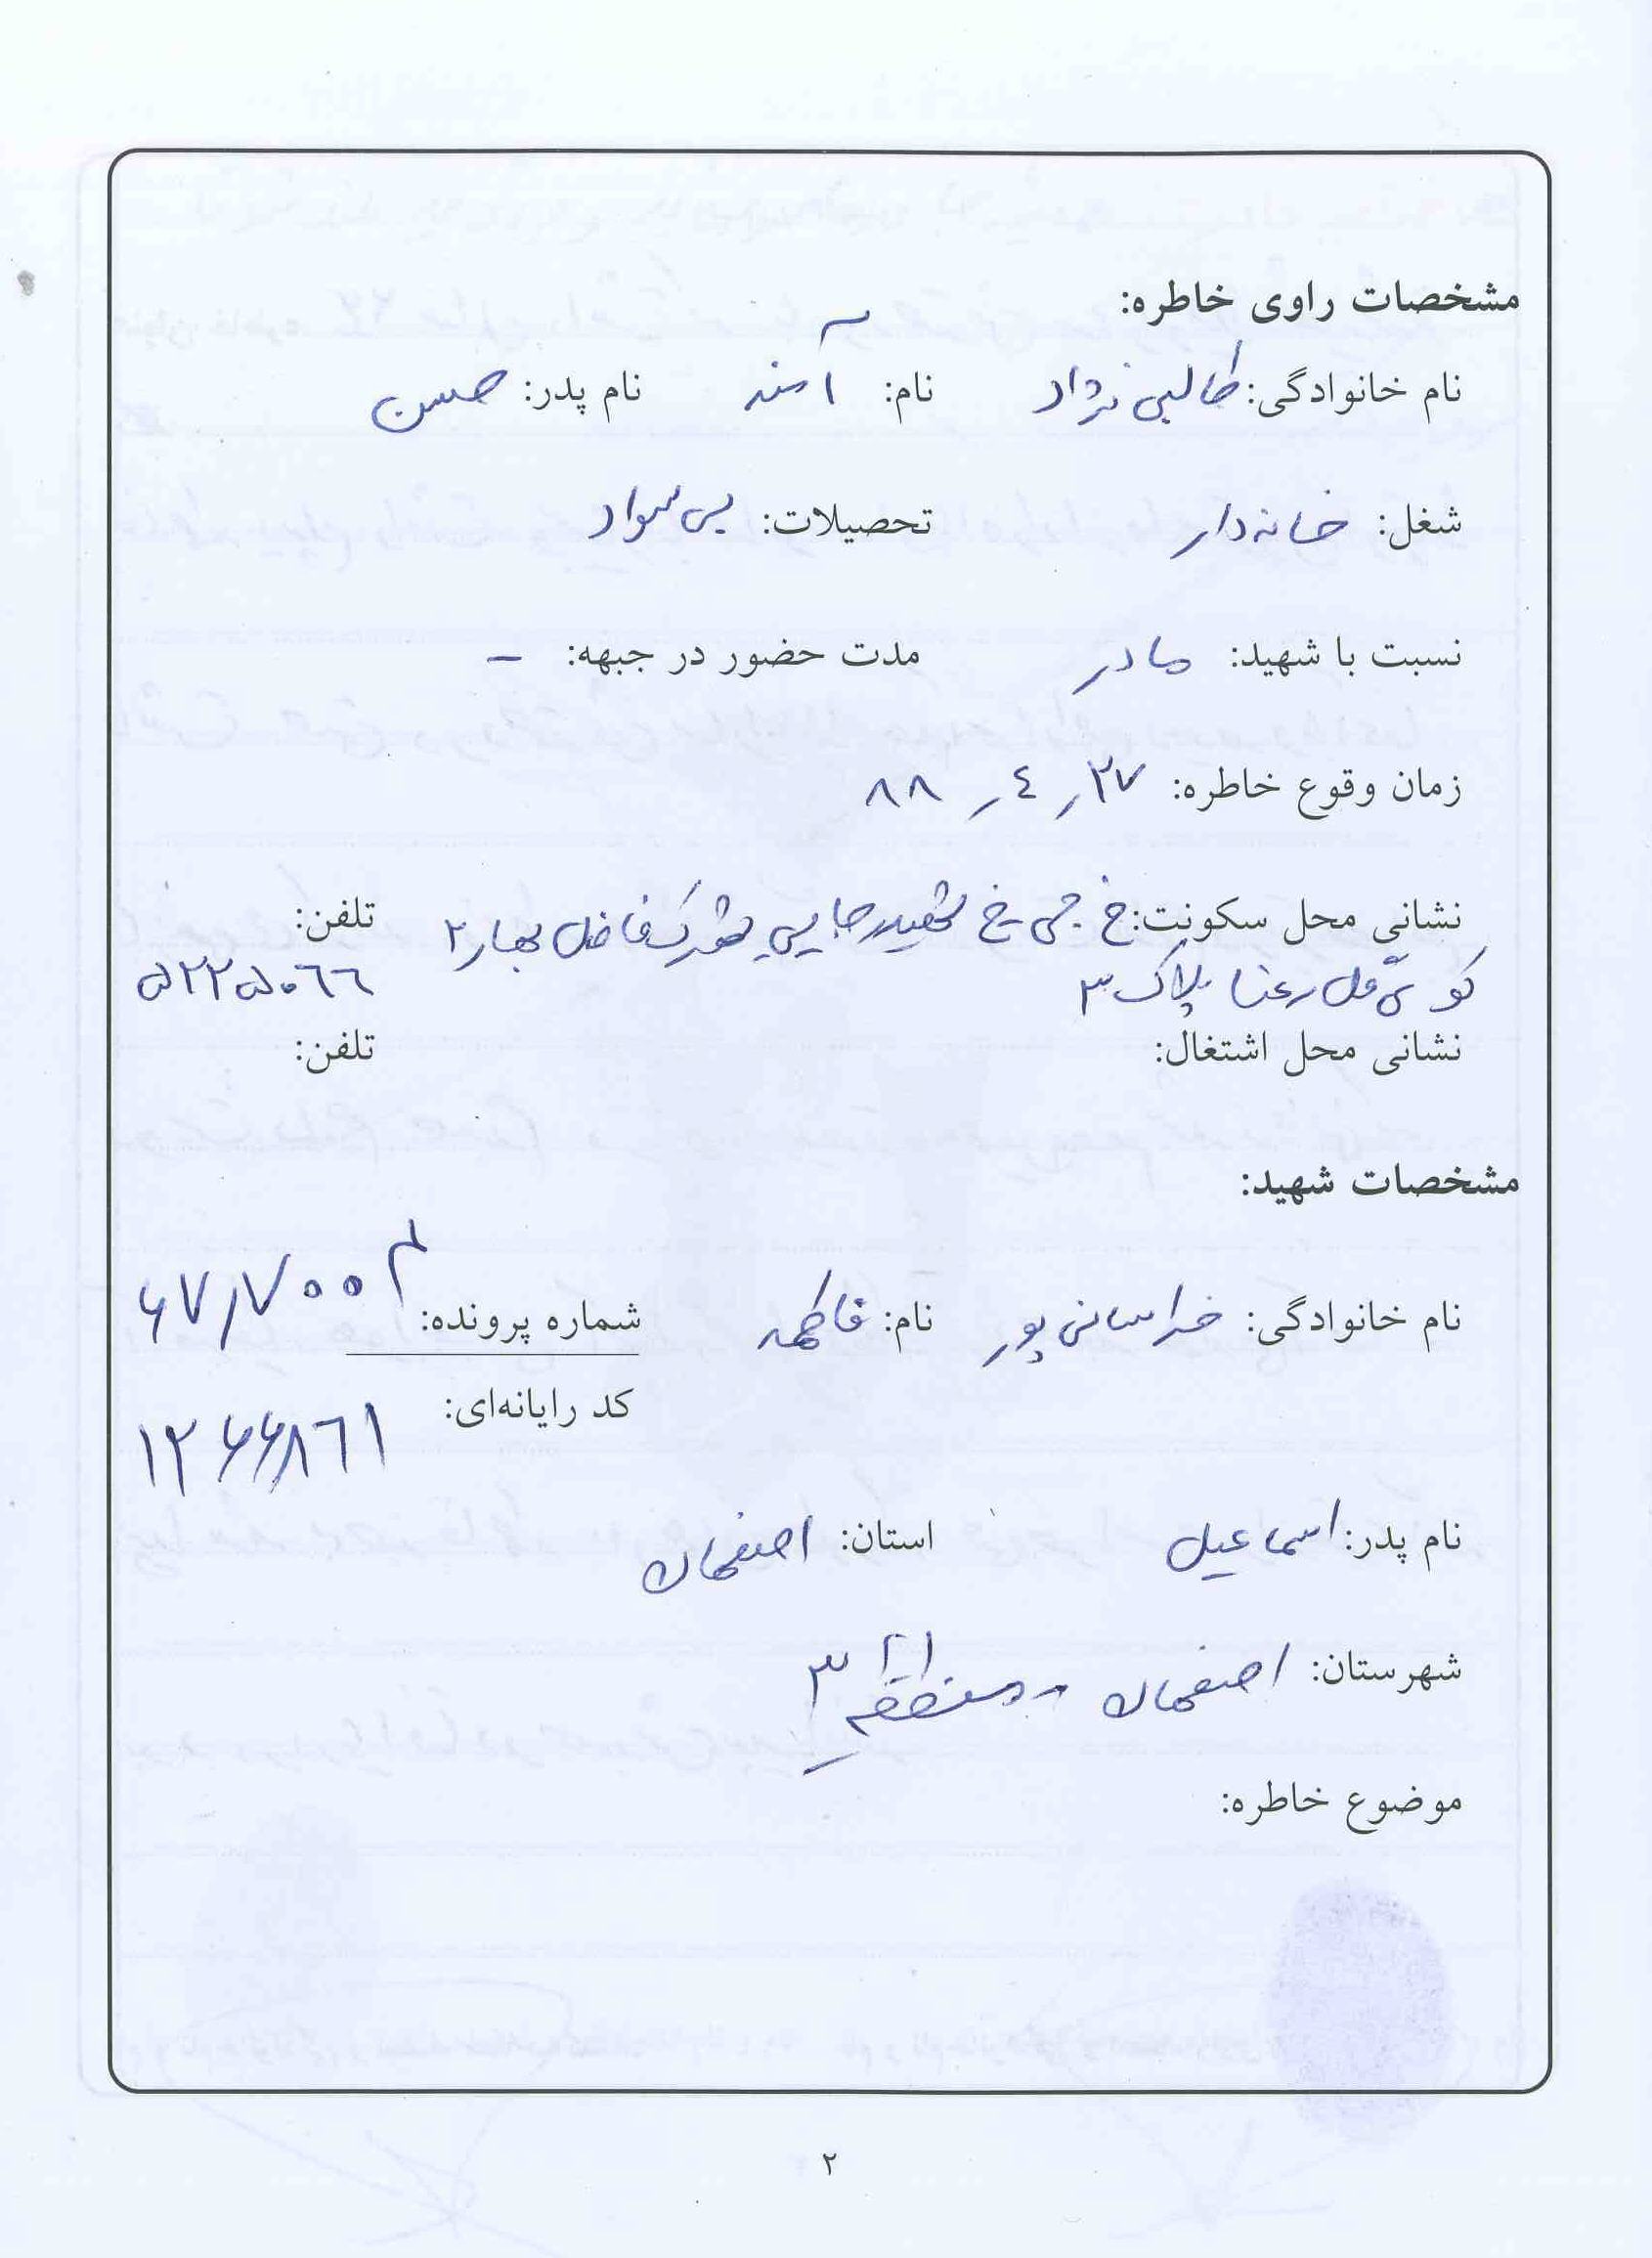 مشخصات راوی خاطره:
نام خانوادگی: طالبی نژاد نام: آمنه نام پدر: حسن
شغل: خانه‌دار تحصیلات: بی سواد
نسبت با شهید: مادر مدت حضور در جبهه: –
زمان وقوع خاطره: ۲۷ ر ٤ ر ۸۸
نشانی محل سکونت: خ جی خ شهید رجایی شهرک فاضل بهار ۲ تلفن:
کوی گل رعنا پلاک ۳ ۵۲۲۵۰٦٦
نشانی محل اشتغال: تلفن:
مشخصات شهید:
نام خانوادگی: خراسانی پور نام: فاطمه شماره پرونده:
کد رایانه‌ای: ۱۲۶۶۸٦۱
نام پدر: اسماعیل استان: اصفهان
شهرستان: اصفهان - منطقه ۳
موضوع خاطره:
۲